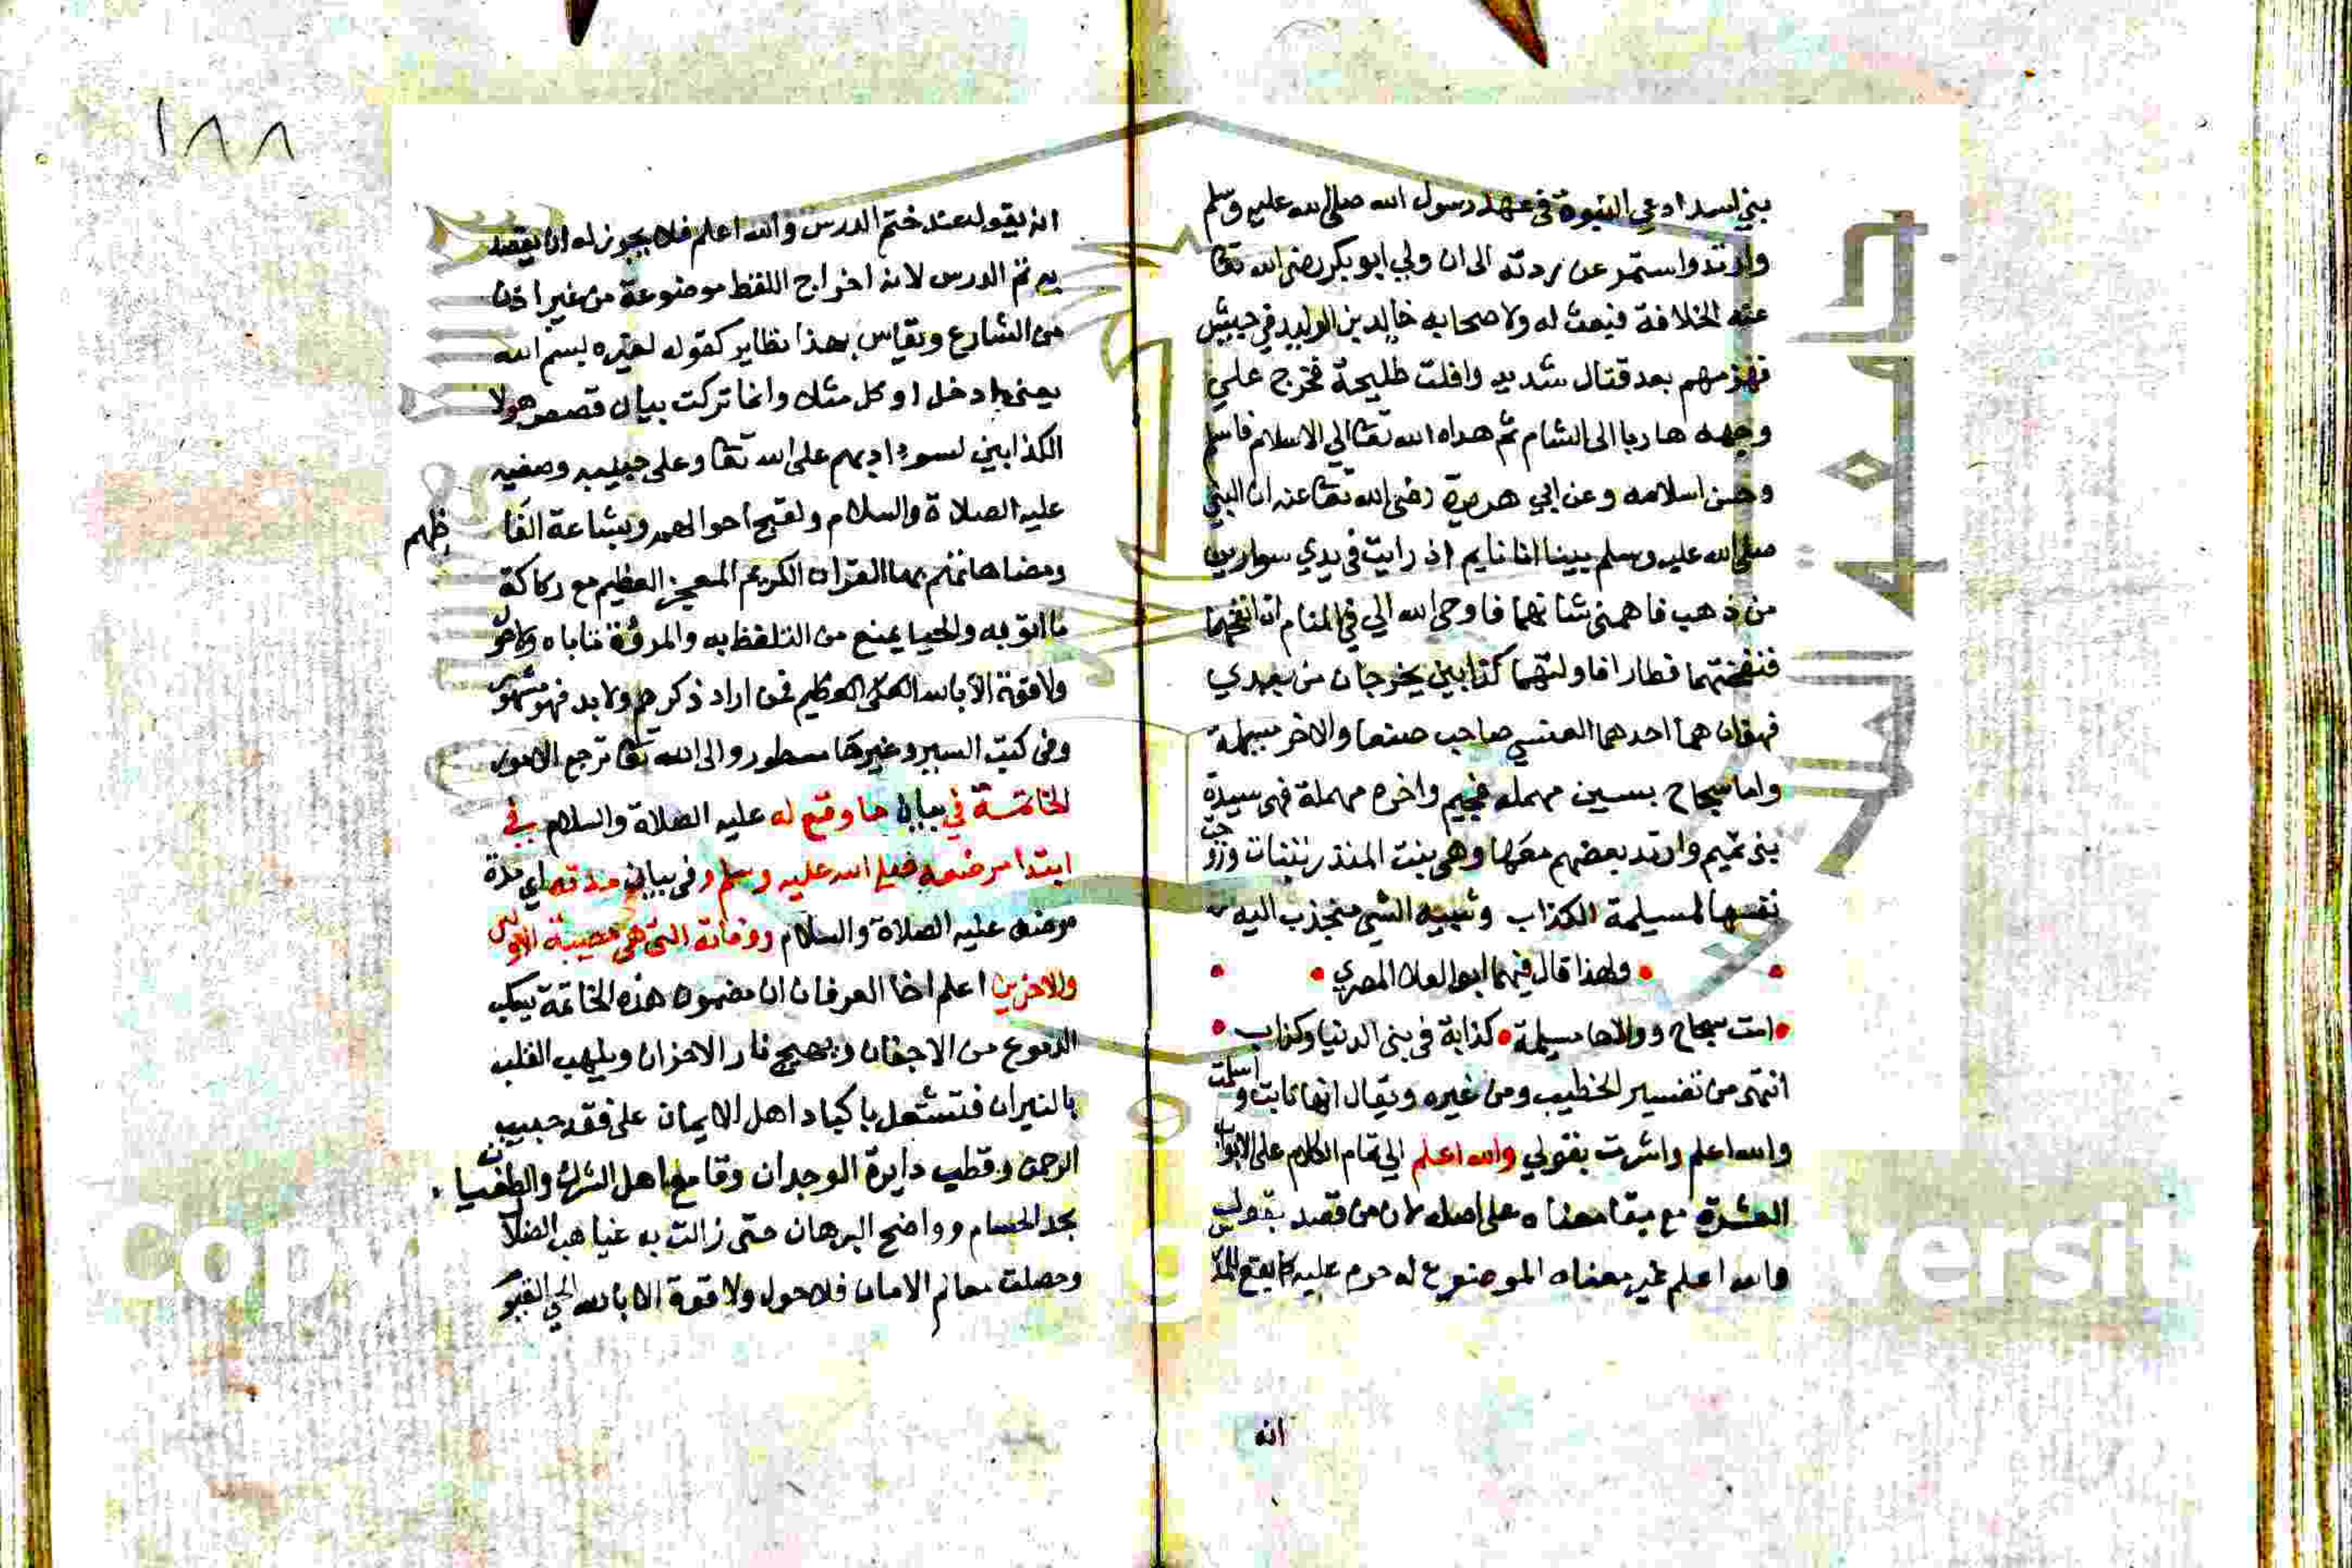 بني اسد ادعي النبوة في عهد رسول الله صلى الله عليه وسلم
وارتد واستمر عن ردته الى ان ولي ابو بكر رضى الله تعا
عنه الخلافة فبعث له ولاصحابه خالد بن الوليد في جيش
فهزمهم بعد قتال شديد وافلت طليحة فخرج علي
وجهه هاربا الى الشام ثم هداه الله تعا الي الاسلام فاسلم
وحسن اسلامه وعن ابي هريرة رضى الله تعا عنه ان النبي
صلى الله عليه وسلم بينا انا نايم اذ رايت في يدي سوارين
من ذهب فاهمني شانهما فاوحى الله الي في المنام ان انفخهما
فنفختهما فطارا فاولتهما كذابين يخرجان من بعدي
فهذان هما احدهما العنسي صاحب صنعا والاخر مسيلمة
واما سجاح بسين مهمله فجيم واخره مهملة فهى سيدة
بنى تميم وارتد بعضهم معها وهى بنت المنذر تنبات وزوجت
نفسها لمسيلمة الكذاب وشبيه الشي منجذب اليه
ولهذا قال فيهما ابو العلا المصري
امت سجاح ووالاها مسيلمة كذابة في بنى الدنيا وكذاب
انتهى من تفسير الخطيب ومن غيره ويقال انها تابت واسلمت
والله اعلم واشرت بقولي والله اعلم الي تمام الكلام على الابواب
العشرة مع بقا معناه على اصله لان من قصد بقوله
والله اعلم غير معناه الموضوع له حرم عليه كما يقع للمدرس
انه
١٨٨
انه يقول عند ختم الدرس والله اعلم فلا يجوز له ان يقصد
به تم الدرس لانه اخراج اللفظ موضوعة من غير اذن
من الشارع وتقاس بهذا نظاير كقوله لغيره بسم الله
يعنى ادخل او كل مثلا وانما تركت بيان قصص هولا
الكذابين لسوء ادبهم على الله تعا وعلى حبيبه وصفيه
عليه الصلاة والسلام ولقبح احوالهم وبشاعة الفاظهم
ومضاهاتهم بها القران الكريم المعجز العظيم مع ركاكة
ما اتو به والحيا يمنع من التلفظ به والمروة تاباه ولا حول
ولا قوة الا بالله العلى العظيم فمن اراد ذكرهم ولا بد فهو مشهور
وفى كتب السير وغيرها مسطور والى الله تعا ترجع الامور
الخاتمة في بيان ما وقع له عليه الصلاة والسلام في
ابتدا مرضه صلى الله عليه وسلم وفى بيان مدته اي مدة
مرضه عليه الصلاة والسلام ووفاته التى هى مصيبة الاولين
والاخرين اعلم اخا العرفان ان مضمون هذه الخاتمة يسكب
الدموع من الاجفان ويهيج نار الاحزان ويلهب القلب
بالنيران فتشتعل باكباد اهل الايمان على فقد حبيب
الرحمن وقطب دايرة الوجدان وقامع اهل الشرك والطغيان
بحد الحسام وواضح البرهان حتى زالت به غياهب الضلا
وحصلت معالم الامان فلا حول ولا قوة الا بالله الحي القيو